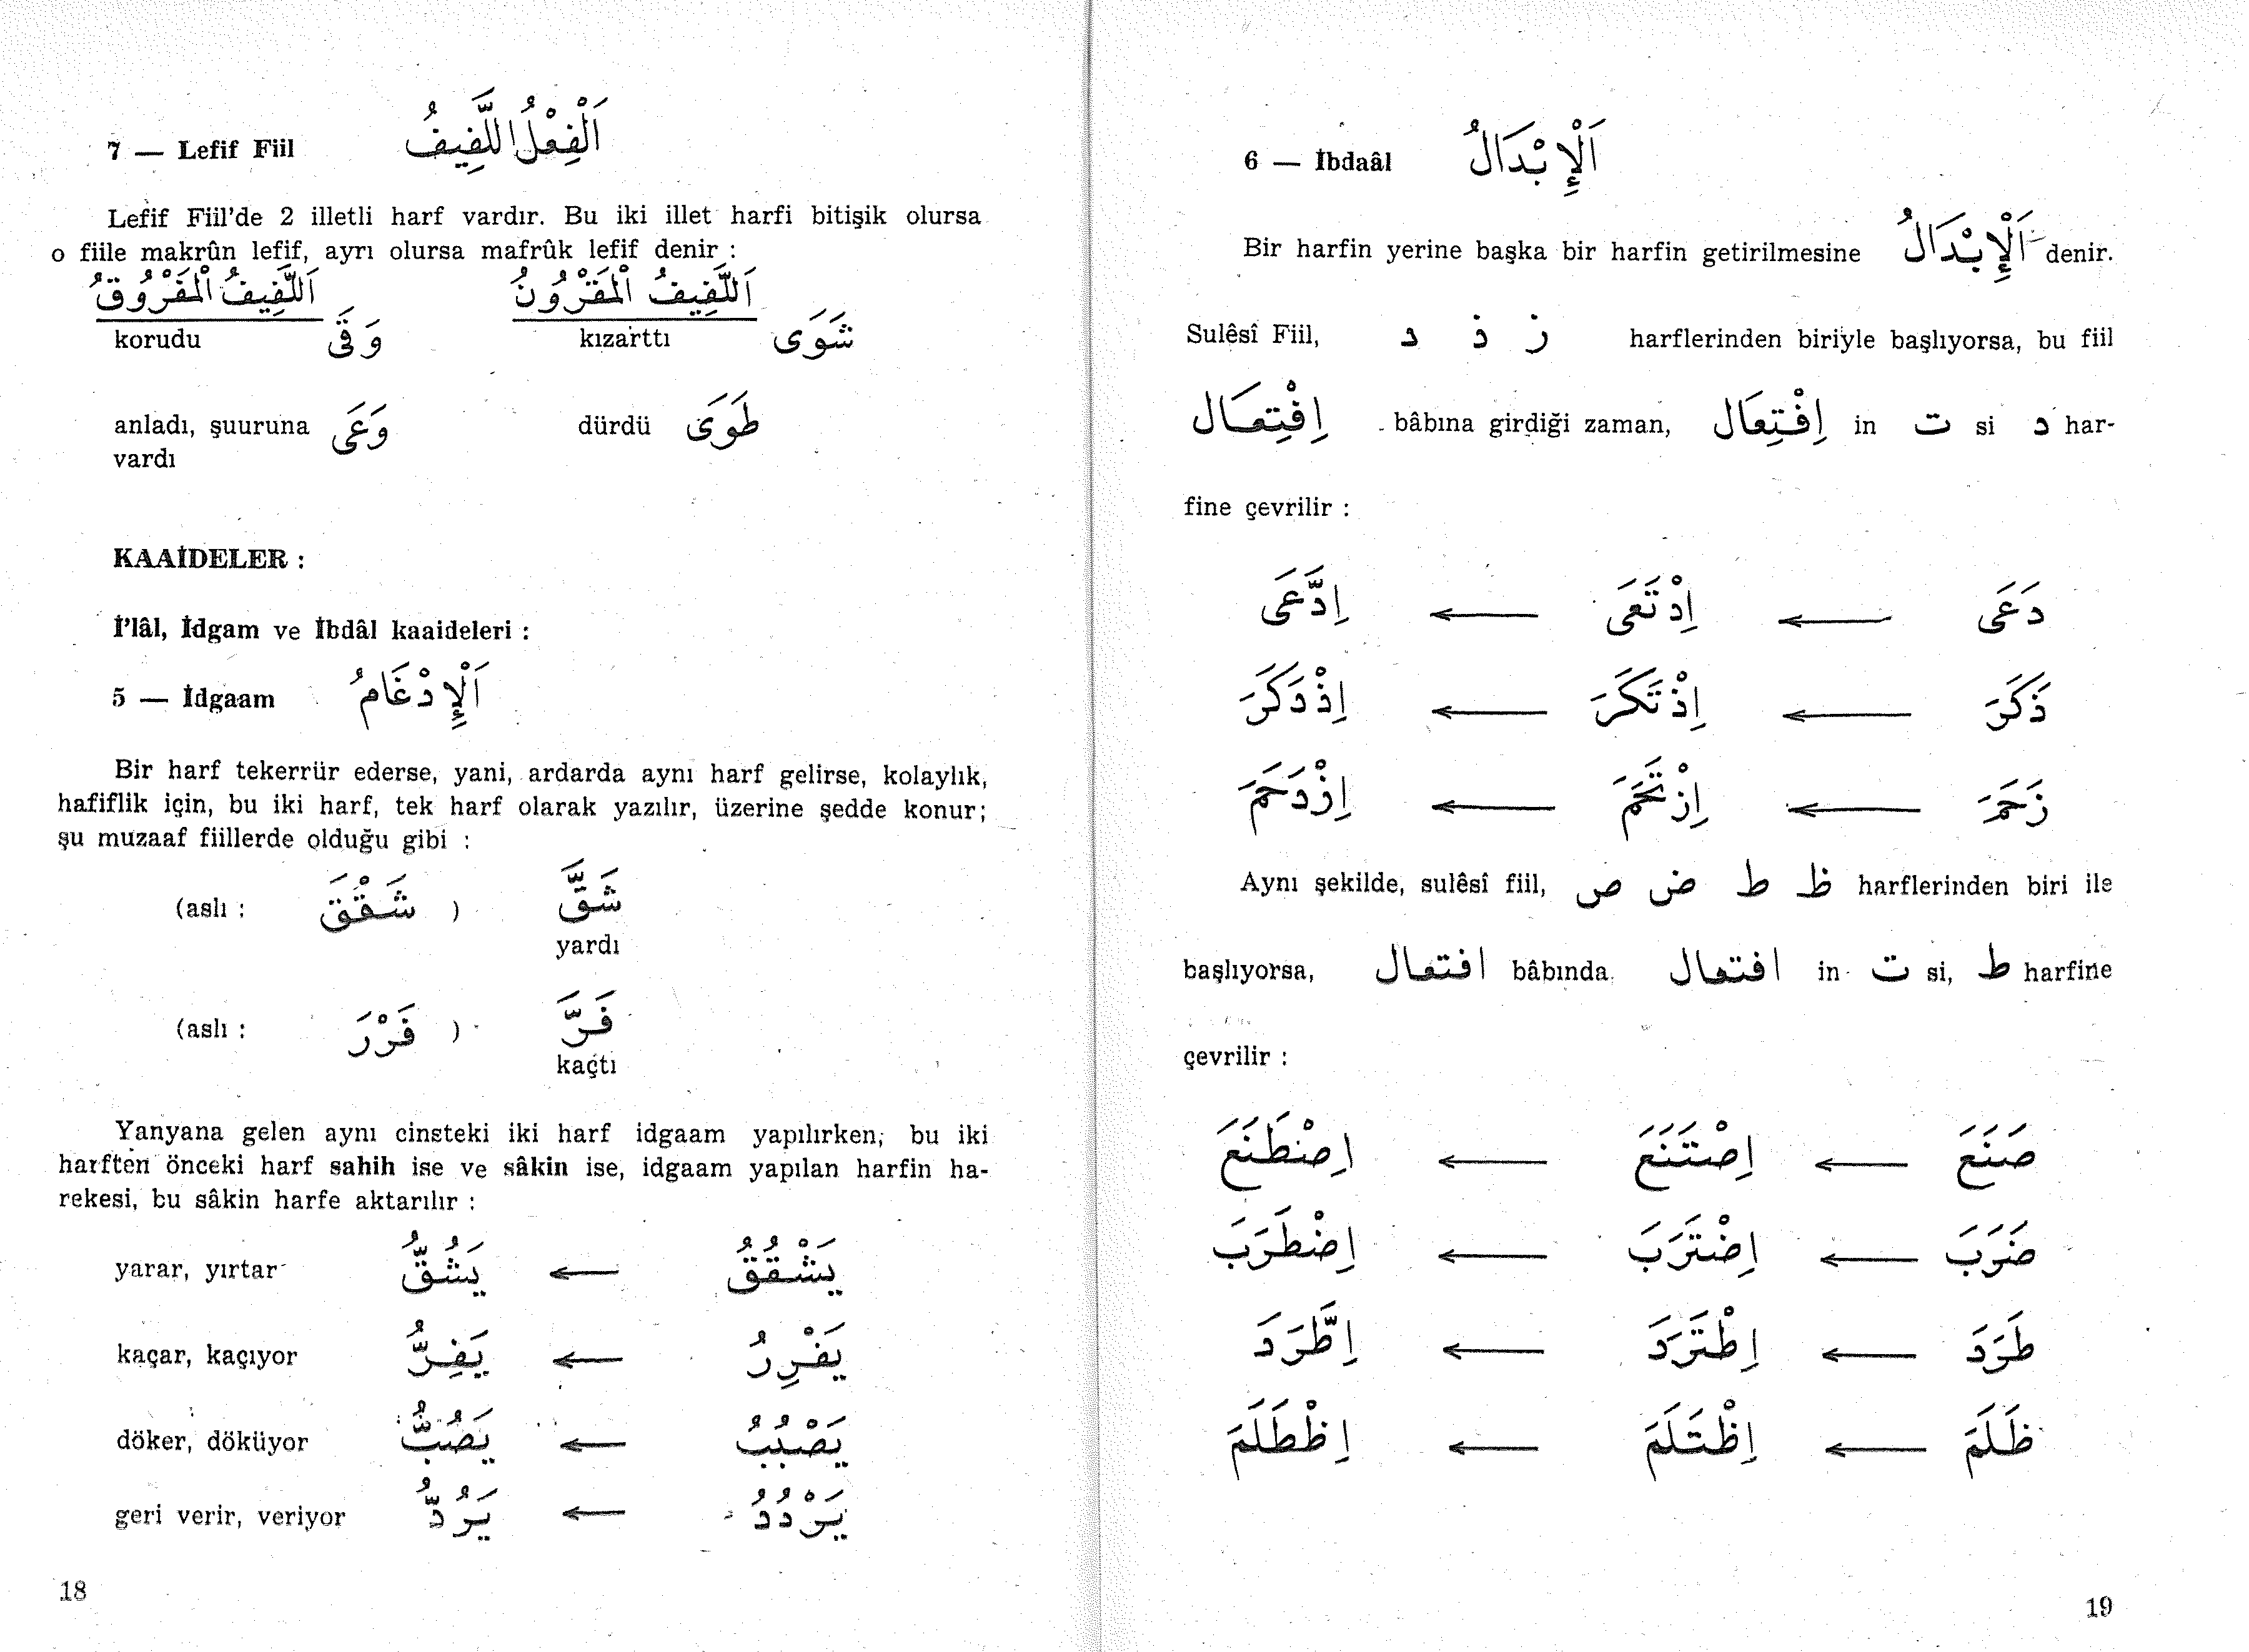 7 — Lefif Fiil اَلْفِعْلُ اللَّفِيفُ
Lefif Fiil'de 2 illetli harf vardır. Bu iki illet harfi bitişik olursa
o fiile makrûn lefif, ayrı olursa mafrûk lefif denir :
اَللَّفِيفُ الْمَفْرُوقُ اَللَّفِيفُ الْمَقْرُونُ
korudu وَقَى kızarttı شَوَى
anladı, şuuruna وَعَى dürdü طَوَى
vardı
KAAİDELER :
İ'lâl, İdgam ve İbdâl kaaideleri :
5 — İdgaam اَلْإِدْغَامُ
Bir harf tekerrür ederse, yani, ardarda aynı harf gelirse, kolaylık,
hafiflik için, bu iki harf, tek harf olarak yazılır, üzerine şedde konur;
şu muzaaf fiillerde olduğu gibi :
(aslı : شَقْقَ ) شَقَّ
yardı
(aslı : فَرْرَ ) فَرَّ
kaçtı
Yanyana gelen aynı cinsteki iki harf idgaam yapılırken, bu iki
harften önceki harf sahih ise ve sâkin ise, idgaam yapılan harfin ha-
rekesi, bu sâkin harfe aktarılır :
yarar, yırtar يَشُقُّ ← يَشْقُقُ
kaçar, kaçıyor يَفِرُّ ← يَفْرِرُ
döker, döküyor يَصُبُّ ← يَصْبُبُ
geri verir, veriyor يَرُدُّ ← يَرْدُدُ
18
6 — İbdaâl اَلْإِبْدَالُ
Bir harfin yerine başka bir harfin getirilmesine اَلْإِبْدَالُ denir.
Sulêsî Fiil, د ذ ز harflerinden biriyle başlıyorsa, bu fiil
اِفْتِعَال bâbına girdiği zaman, اِفْتِعَال in ت si د har-
fine çevrilir :
اِدَّعَى ← اِدْتَعَى ← دَعَى
اِذْدَكَرَ ← اِذْتَكَرَ ← ذَكَرَ
اِزْدَحَمَ ← اِزْتَحَمَ ← زَحَمَ
Aynı şekilde, sulêsî fiil, ص ض ط ظ harflerinden biri ile
başlıyorsa, افتعال bâbında افتعال in ت si, ط harfine
çevrilir :
اِصْطَنَعَ ← اِصْتَنَعَ ← صَنَعَ
اِضْطَرَبَ ← اِضْتَرَبَ ← ضَرَبَ
اِطَّرَدَ ← اِطْتَرَدَ ← طَرَدَ
اِظْطَلَمَ ← اِظْتَلَمَ ← ظَلَمَ
19